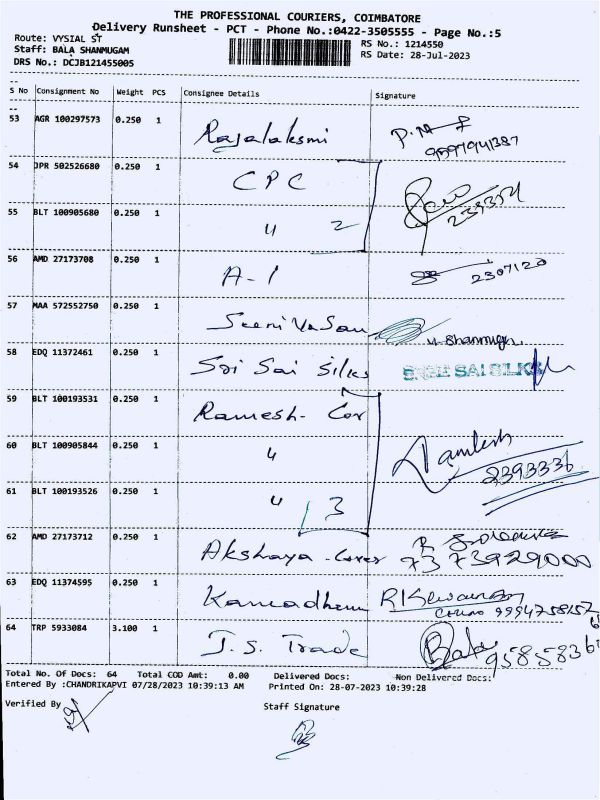 THE PROFESSIONAL COURIERS, COIMBATORE
Delivery Runsheet - PCT - Phone No.:0422-3505555 - Page No.:5
Route: VYSIAL ST
RS No.: 1214550
Staff: BALA SHANMUGAM
RS Date: 28-Jul-2023
DRS No.: DCJB121455005
S No Consignment No Weight PCS Consignee Details Signature
53 AGR 100297573 0.250 1 Rajalaksmi
54 JPR 502526680 0.250 1 CPC
239354
55 BLT 100905680 0.250 1 " 2
56 AMD 27173708 0.250 1 A-1 2307120
57 MAA 572552750 0.250 1 SeeniVasan
58 EDQ 11372461 0.250 1 Sri Sai Silks SREE SAI SILKS
59 BLT 100193531 0.250 1 Ramesh- Cov
60 BLT 100905844 0.250 1 "
2393336
61 BLT 100193526 0.250 1 " 3
62 AMD 27173712 0.250 1 Akshaya -Cover 7373929000
63 EDQ 11374595 0.250 1 Kamadhenu
9994758157
64 TRP 5933084 3.100 1 J.S. Trade Bala
Total No. Of Docs: 64 Total COD Amt: 0.00 Delivered Docs: Non Delivered Docs:
Entered By :CHANDRIKAPVI 07/28/2023 10:39:13 AM Printed On: 28-07-2023 10:39:28
Verified By
Staff Signature